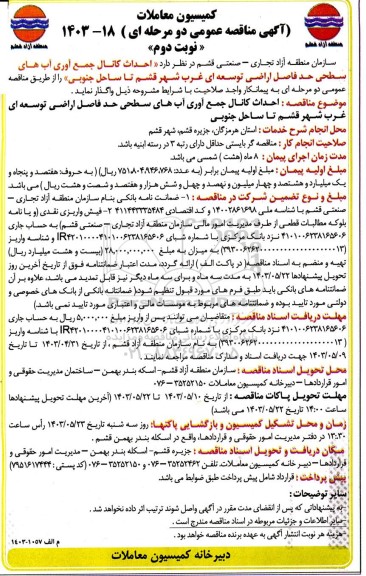 کمیسیون معاملات
(آگهی مناقصه عمومی دو مرحله ای ) ۱۸- ۱۴۰۳
« نوبت دوم»
سازمان منطقه آزاد تجاری – صنعتی قشم در نظر دارد « احداث کانال جمع آوری آب های
سطحی حد فاصل اراضی توسعه ای غرب شهر قشم تا ساحل جنوبی» را از طریق مناقصه
عمومی دو مرحله ای به پیمانکار واجد صلاحیت با شرایط مشروحه ذیل واگذار نماید.
موضوع مناقصه : احداث کانال جمع آوری آب های سطحی حد فاصل اراضی توسعه ای
غرب شهر قشم تا ساحل جنوبی
محل انجام شرح خدمات : استان هرمزگان، جزیره قشم، شهر قشم
صلاحیت انجام کار : مناقصه گر بایستی حداقل دارای رتبه ۳ در رسته ابنیه باشد.
مدت زمان اجرای پیمان : ۸ ماه (هشت ) شمسی می باشد.
مبلغ اولیه پیمان : مبلغ اولیه پیمان برابر (به عدد: ۷۵۱،۸۰۴،۹۴۶،۷۶۸ ریال) ( به حروف: هفتصد و پنجاه و
یک میلیارد و هشتصد و چهار میلیون و نهصد و چهل و شش هزار و هفتصد و شصت و هشت ریال ) می باشد.
مبلغ و نوع تضمین شرکت در مناقصه : ۱- ضمانت نامه بانکی بنام سازمان منطقه آزاد تجاری –
صنعتی قشم با شناسه ملی ۱۴۰۰۲۸۶۱۶۹۸ و کد اقتصادی ۴۱۱۴۴۳۳۳۵۴۸۴ ۲- فیش واریزی نقدی (و یا نامه
بلوکه مطالبات قطعی از طرف مدیریت امور مالی سازمان منطقه آزاد تجاری – صنعتی قشم) به حساب جاری
نزد بانک مرکزی با شماره شبای و شناسه واریز
به میزان به مبلغ ۲۸،۰۰۰،۰۰۰،۰۰۰ (بیست و هشت میلیارد ریال)
تهیه و منضم به اسناد مناقصه ( در پاکت الف ) ارائه گردد. مدت اعتبار ضمانتنامه فوق از تاریخ آخرین روز
تحویل پیشنهادها ۱۴۰۳/۰۵/۲۲ به مدت سه ماه و برای سه ماه دیگر نیز قابل تمدید می باشد، علاوه بر آن
ضمانتنامه های بانکی باید طبق فرم های مورد قبول تنظیم شود( ضمانتنامه بانکی از بانک های خصوصی و
دولتی مورد تایید بوده و ضمانتنامه های مربوط به موسسات مالی و اعتباری مورد تایید نمی باشد)
مهلت دریافت اسناد مناقصه : متقاضیان می توانند پس از واریز مبلغ ۵،۰۰۰،۰۰۰ ریال به حساب جاری
نزد بانک مرکزی با شماره شبای با شناسه واریز
به نام سازمان منطقه آزاد قشم ، از تاریخ ۱۴۰۳/۰۴/۳۱ تا تاریخ
۱۴۰۳/۰۵/۰۹ جهت دریافت اسناد و مدارک مناقصه مراجعه نمایند .
محل تحویل اسناد مناقصه : سازمان منطقه آزاد قشم- اسکله بندر بهمن – ساختمان مدیریت حقوقی و
امور قراردادها – دبیرخانه کمیسیون معاملات ۳۵۲۵۲۱۵۰ -۰۷۶
مهلت تحویل پاکات مناقصه : از تاریخ ۱۴۰۳/۰۵/۱۰ تا ۱۴۰۳/۰۵/۲۲ (آخرین مهلت تحویل پیشنهادها
ساعت ۱۴:۰۰ تاریخ ۱۴۰۳/۰۵/۲۲ می باشد)
زمان و محل تشکیل کمیسیون و بازگشایی پاکتها: روز سه شنبه تاریخ ۱۴۰۳/۰۵/۲۳ رأس ساعت
۱۳:۳۰ در دفتر مدیریت امور حقوقی و قراردادها، واقع در اسکله بندر بهمن قشم .
مکان دریافت و تحویل اسناد مناقصه : جزیره قشم- اسکله بندر بهمن – مدیریت امور حقوقی و
قراردادها – دبیر خانه کمیسیون معاملات. تلفن ۳۵۲۵۲۴۶۲ -۰۷۶ و ۳۵۲۵۲۱۵۰ -۰۷۶ (کد پستی: ۷۹۵۱۶۱۷۴۴۴)
پیش پرداخت : قرارداد شامل پیش پرداخت طبق ضوابط می باشد.
سایر توضیحات :
به پیشنهاداتی که پس از انقضای مدت مقرر در آگهی واصل شوند ترتیب اثر داده نخواهد شد .
سایر اطلاعات و جزئیات مربوطه در اسناد مناقصه مندرج است .
هزینه هر نوبت انتشار آگهی به عهده برنده مناقصه خواهد بود.
م الف ۱۰۵۷-۱۴۰۳
دبیرخانه کمیسیون معاملات